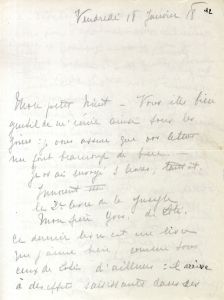 Vendredi 18 Janvier 18
Mon petit – Vous êtes bien
gentil de m'écrire ainsi tous les
jours; je vous assure que vos lettres
me font beaucoup de bien.
Je vous ai envoyé 3 livres,
Innocent
le 2e livre de la Jungle
Mon père
Ce dernier est un livre
que j'aime bien comme tous
ceux de d'ailleurs: il arrive
à des effets saisissants dans des